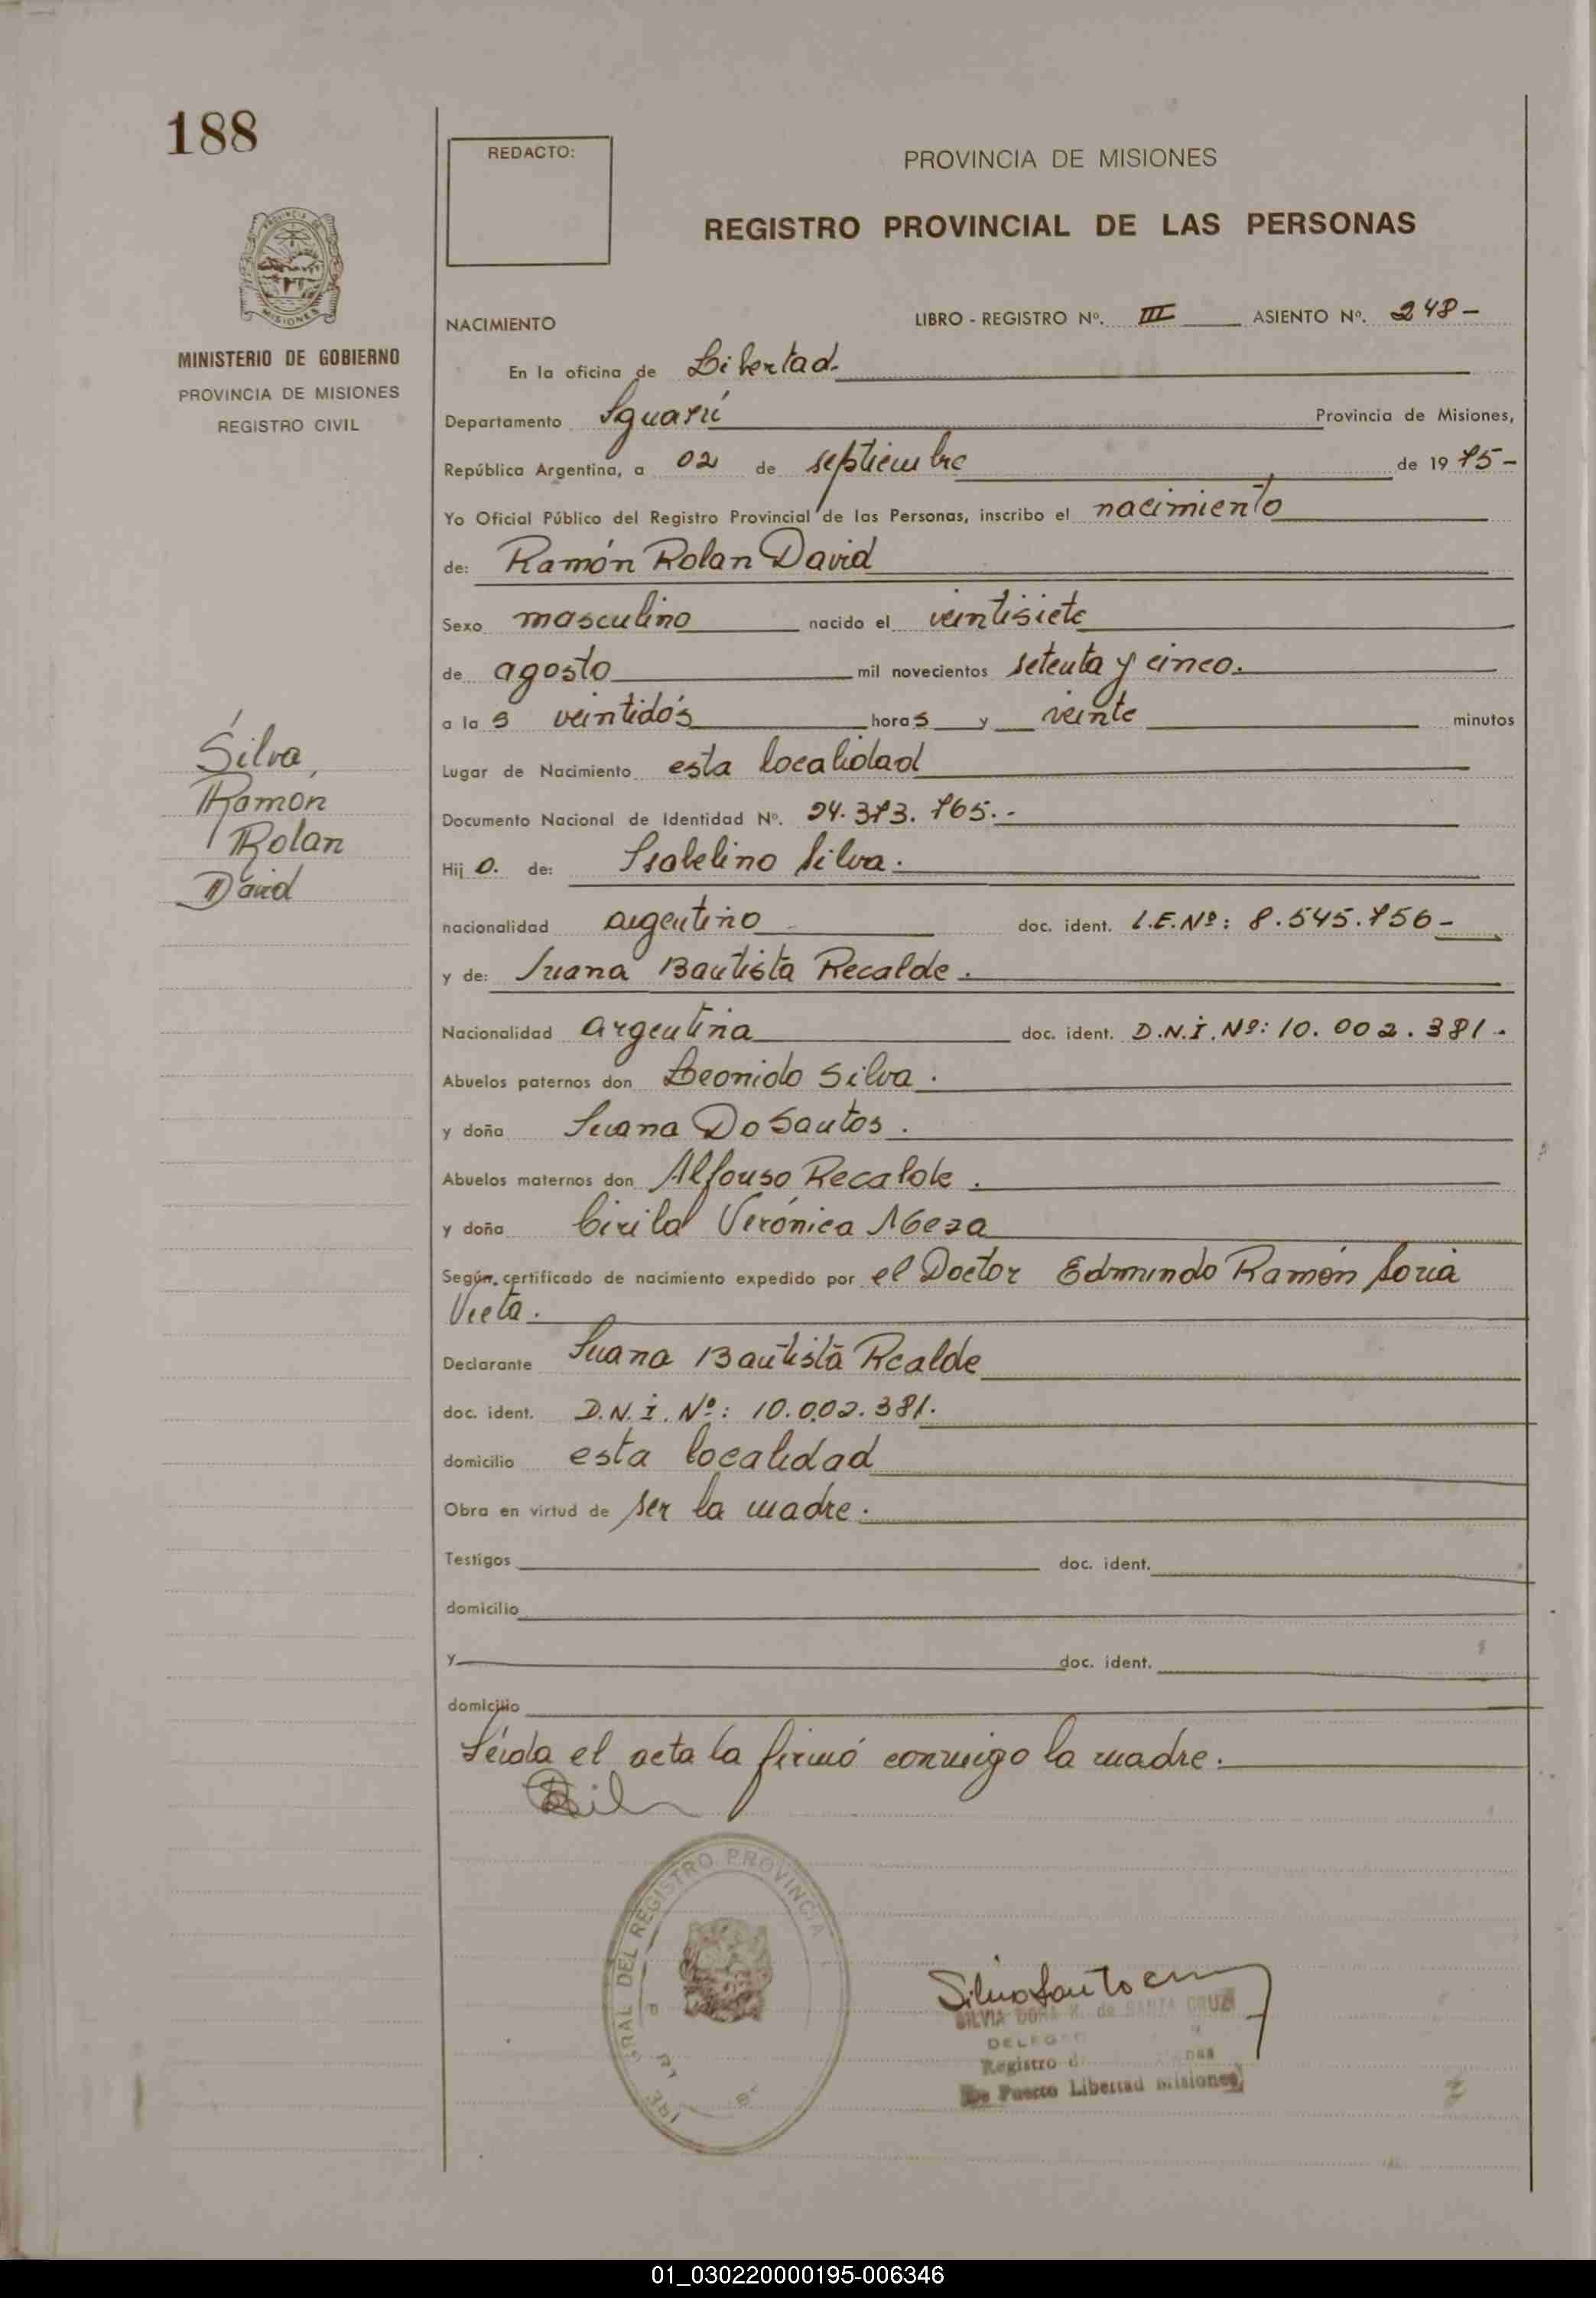 188
REDACTO:
PROVINCIA DE MISIONES
REGISTRO PROVINCIAL DE LAS PERSONAS
MISIONES
MINISTERIO DE GOBIERNO
PROVINCIA DE MISIONES
REGISTRO CIVIL
NACIMIENTO LIBRO - REGISTRO Nº. III ASIENTO Nº. 248-
En la oficina de Libertad.
Departamento Iguazú Provincia de Misiones,
República Argentina, a 02 de septiembre de 1975-
Yo Oficial Público del Registro Provincial de las Personas, inscribo el nacimiento
de: Ramón Rolan David
Sexo masculino nacido el veintisiete
de agosto mil novecientos setenta y cinco.
a las veintidós horas y veinte minutos
Lugar de Nacimiento esta localidad
Documento Nacional de Identidad Nº. 24.373.765.-
Hijo. de: Isabelino Silva.
nacionalidad argentino doc. ident. L.E.Nº: 8.545.756-
y de: Juana Bautista Recalde.
Nacionalidad argentina doc. ident. D.N.I.Nº: 10.002.381-
Abuelos paternos don Leonido Silva.
y doña Juana Do Santos.
Abuelos maternos don Alfonso Recalde.
y doña Cirila Verónica Meza
Según certificado de nacimiento expedido por el Doctor Edmundo Ramón Soria
Vieta.
Declarante Juana Bautista Rcalde
doc. ident. D.N.I. Nº: 10.002.381.
domicilio esta localidad
Obra en virtud de ser la madre.
Testigos doc. ident.
domicilio
y doc. ident.
domicilio
Leída el acta la firmó conmigo la madre.
Silva,
Ramon
Rolan
David
RAL DEL REGISTRO PROVINCIA
SILVIA DORA de SANTA CRUZ
Registro
De Puerto Libertad Misiones
01_030220000195-006346